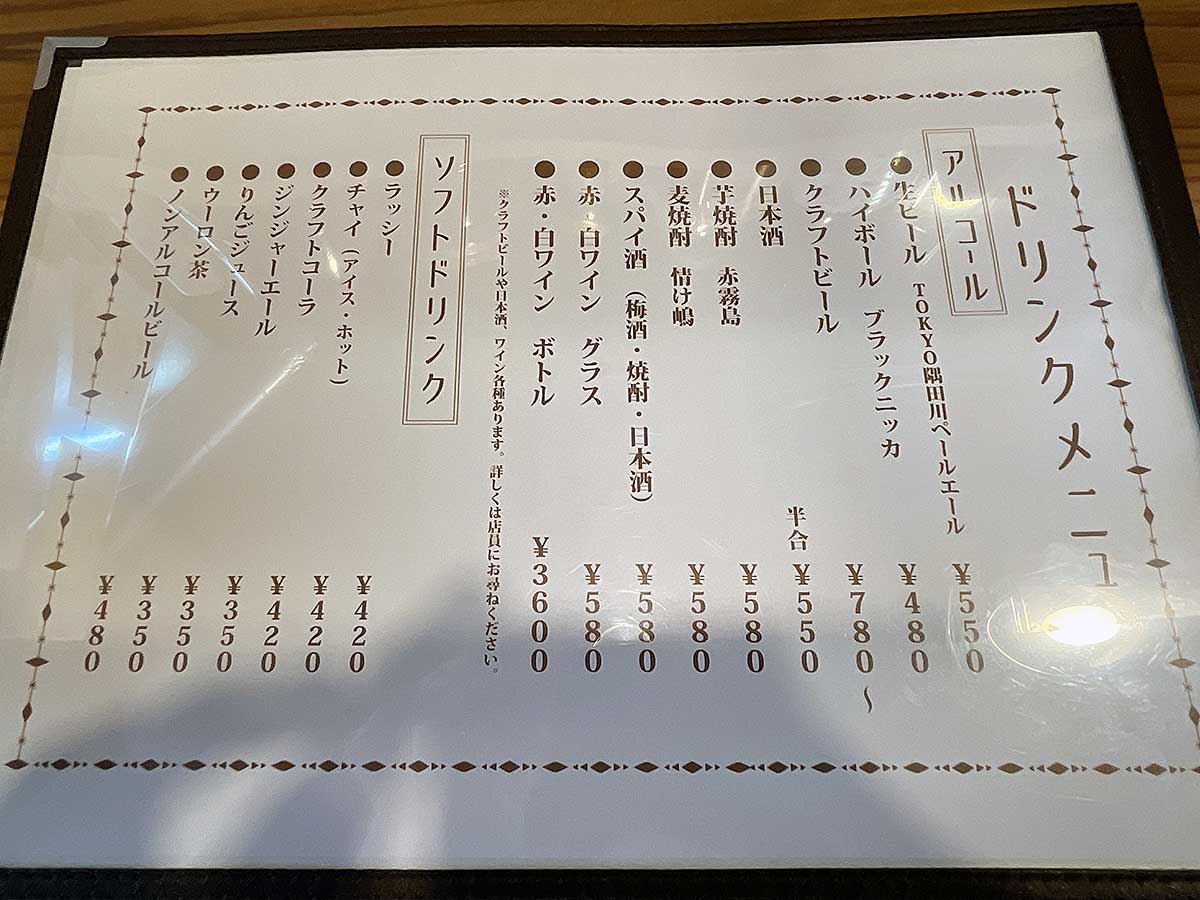 ドリンクメニュー
アルコール
●生ビール TOKYO隅田川ペールエール ¥550
●ハイボール ブラックニッカ ¥480
●クラフトビール ¥780~
●日本酒 半合 ¥550
●芋焼酎 赤霧島 ¥580
●麦焼酎 情け嶋 ¥580
●スパイ酒(梅酒・焼酎・日本酒) ¥580
●赤・白ワイン グラス ¥580
●赤・白ワイン ボトル ¥3600
※クラフトビールや日本酒、ワイン各種あります。詳しくは店員にお尋ねください。
ソフトドリンク
●ラッシー ¥420
●チャイ(アイス・ホット) ¥420
●クラフトコーラ ¥420
●ジンジャーエール ¥350
●りんごジュース ¥350
●ウーロン茶 ¥350
●ノンアルコールビール ¥480